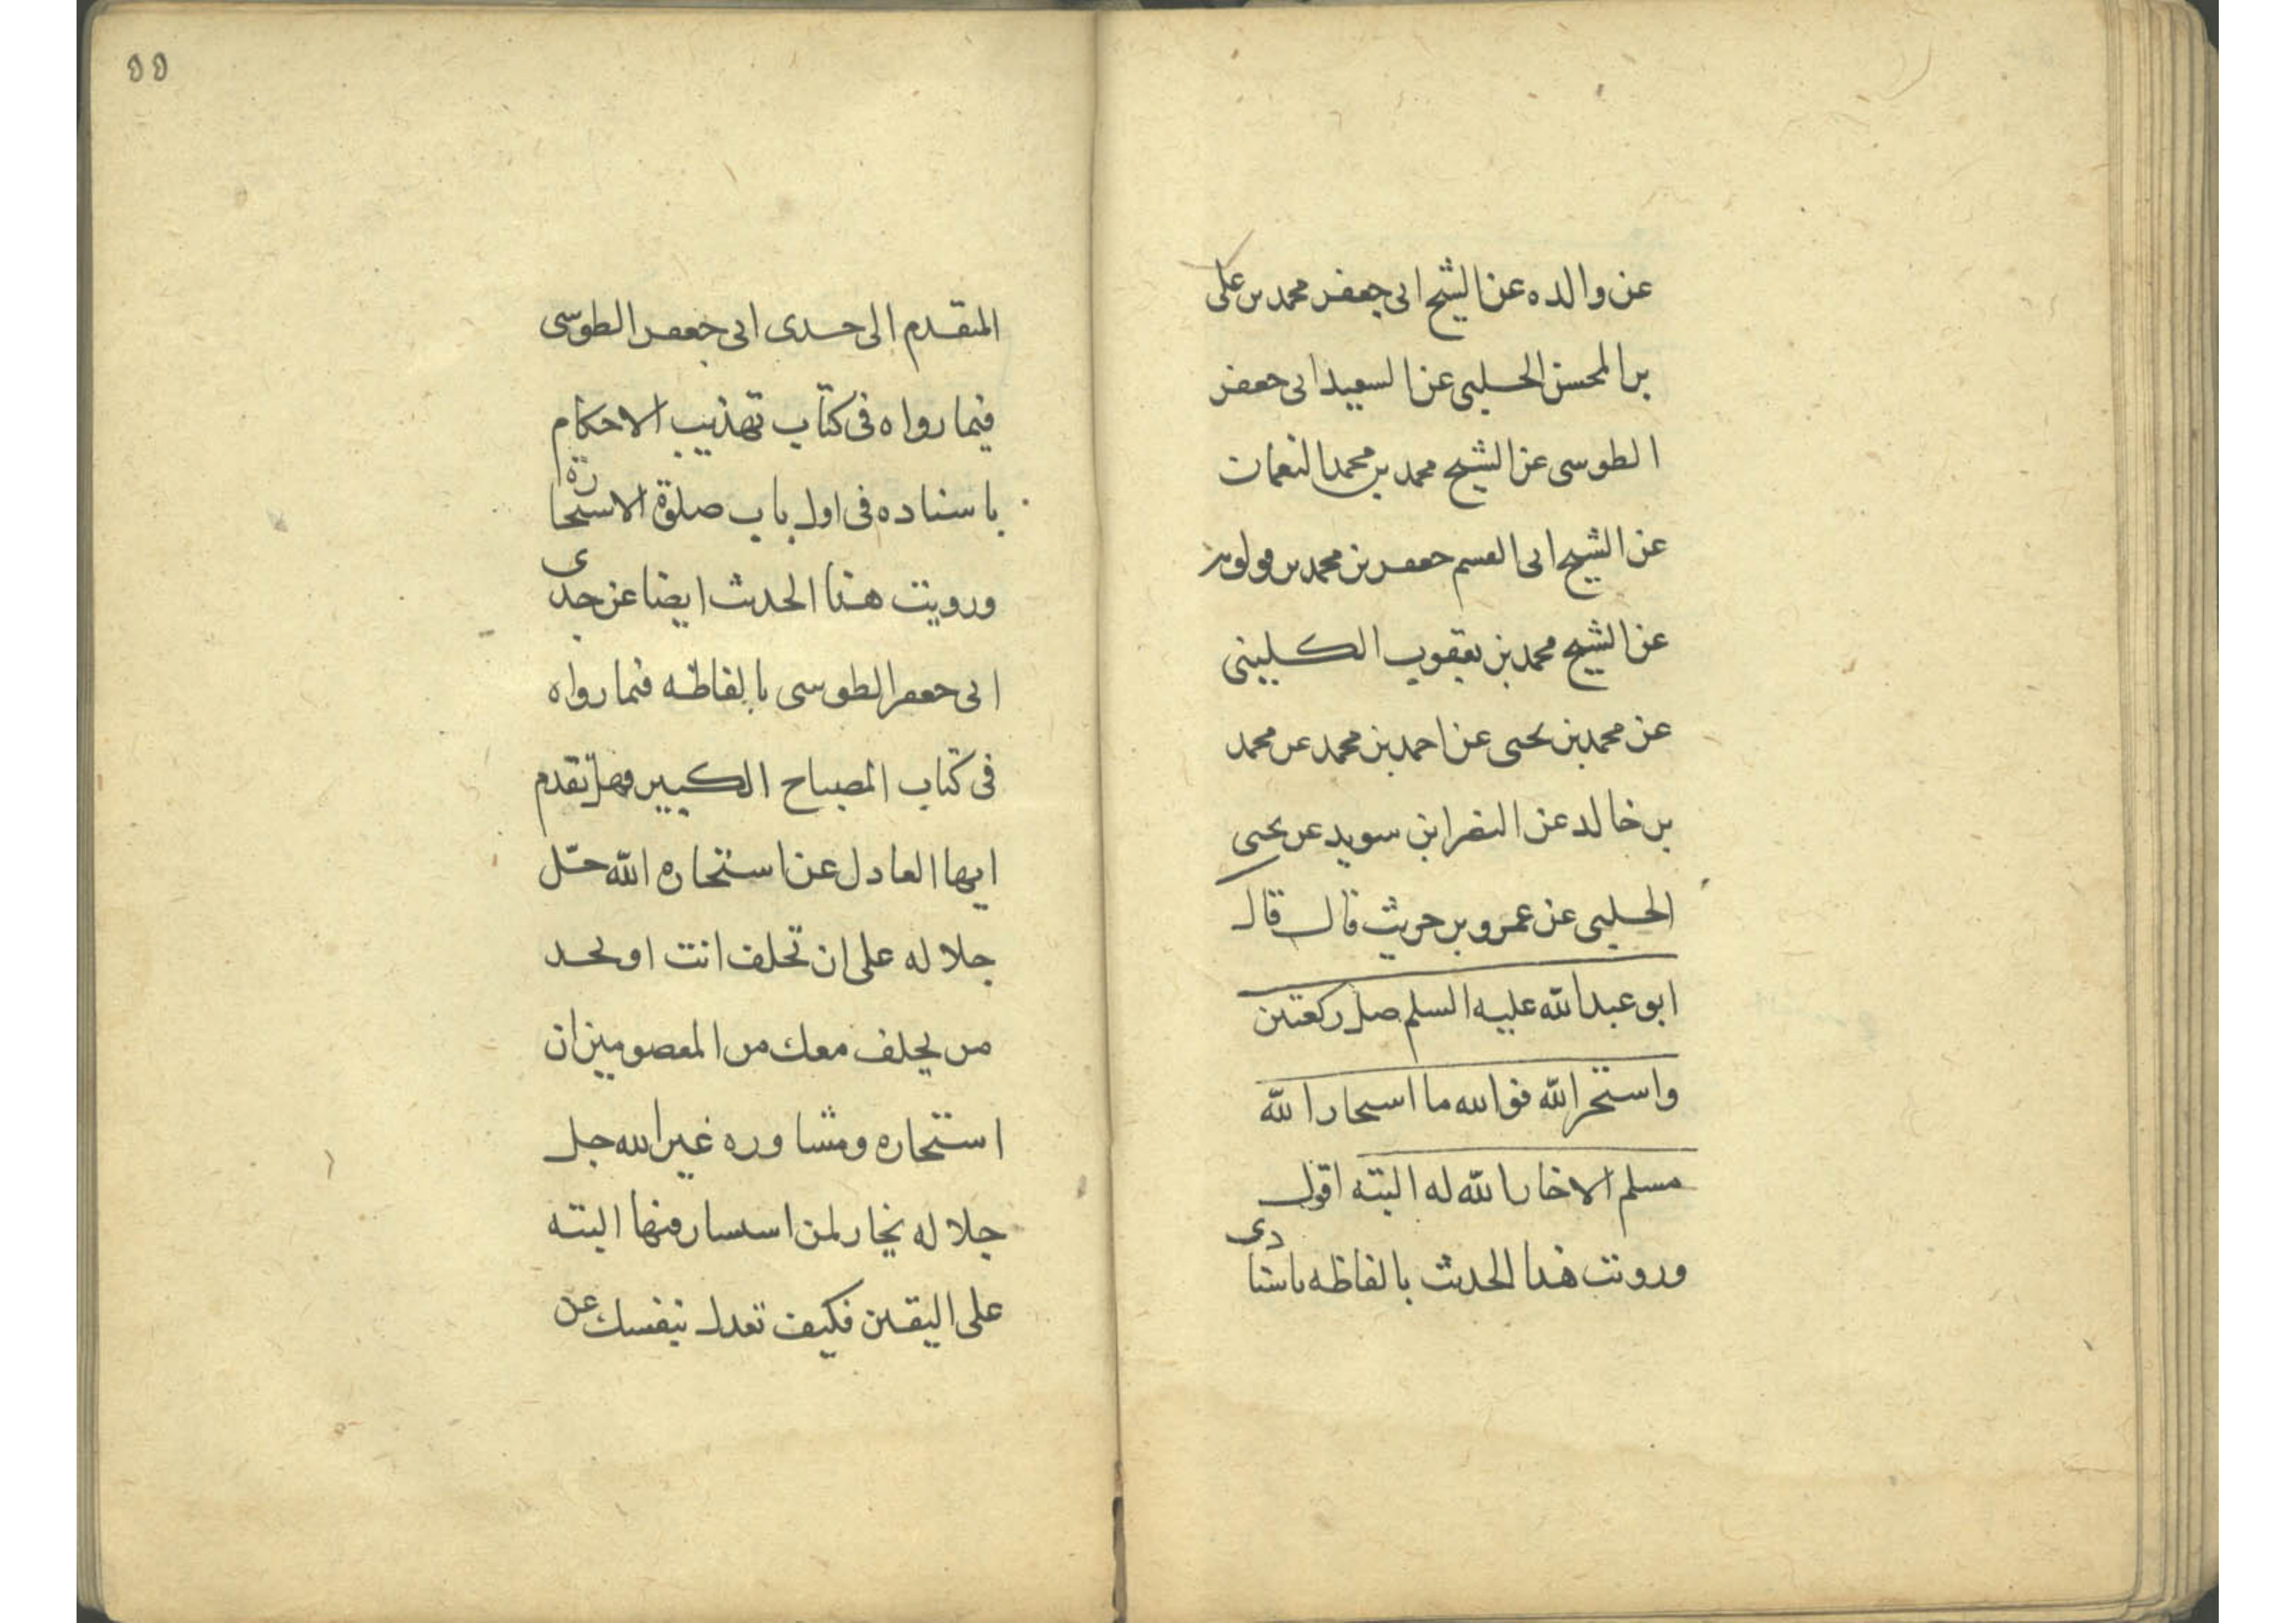 عن والده عن الشيخ ابى جعفر محمد بن على
بن المحسن الحلبى عن السعيد ابى جعفر
الطوسى عن الشيخ محمد بن محمد النعمان
عن الشيخ ابى القسم جعفر بن محمد بن قولويه
عن الشيخ محمد بن يعقوب الكلينى
عن محمد بن يحيى عن احمد بن محمد عن محمد
بن خالد عن النضر ابن سويد عن يحيى
الحلبى عن عمرو بن حريث قال قال
ابو عبد الله عليه السلم صل ركعتين
واستخر الله فوالله ما استخار الله
مسلم الا خار الله له البته اقول
ورويت هذا الحديث بالفاظه باسنادى
٥٥
المتقدم الى جدى ابى جعفر الطوسى
فيما رواه فى كتاب تهذيب الاحكام
باسناده فى اول باب صلوة الاستخارة
ورويت هذا الحديث ايضا عن جدى
ابى جعفر الطوسى بالفاظه فيما رواه
فى كتاب المصباح الكبير فهل تقدم
ايها العادل عن استخاره الله جّل
جلاله على ان تحلف انت او تجد
من يحلف معك من المعصومين ان
استخاره ومشاوره غير الله جل
جلاله يخار لمن استشار فيها البته
على اليقين فكيف تعدل بنفسك عن